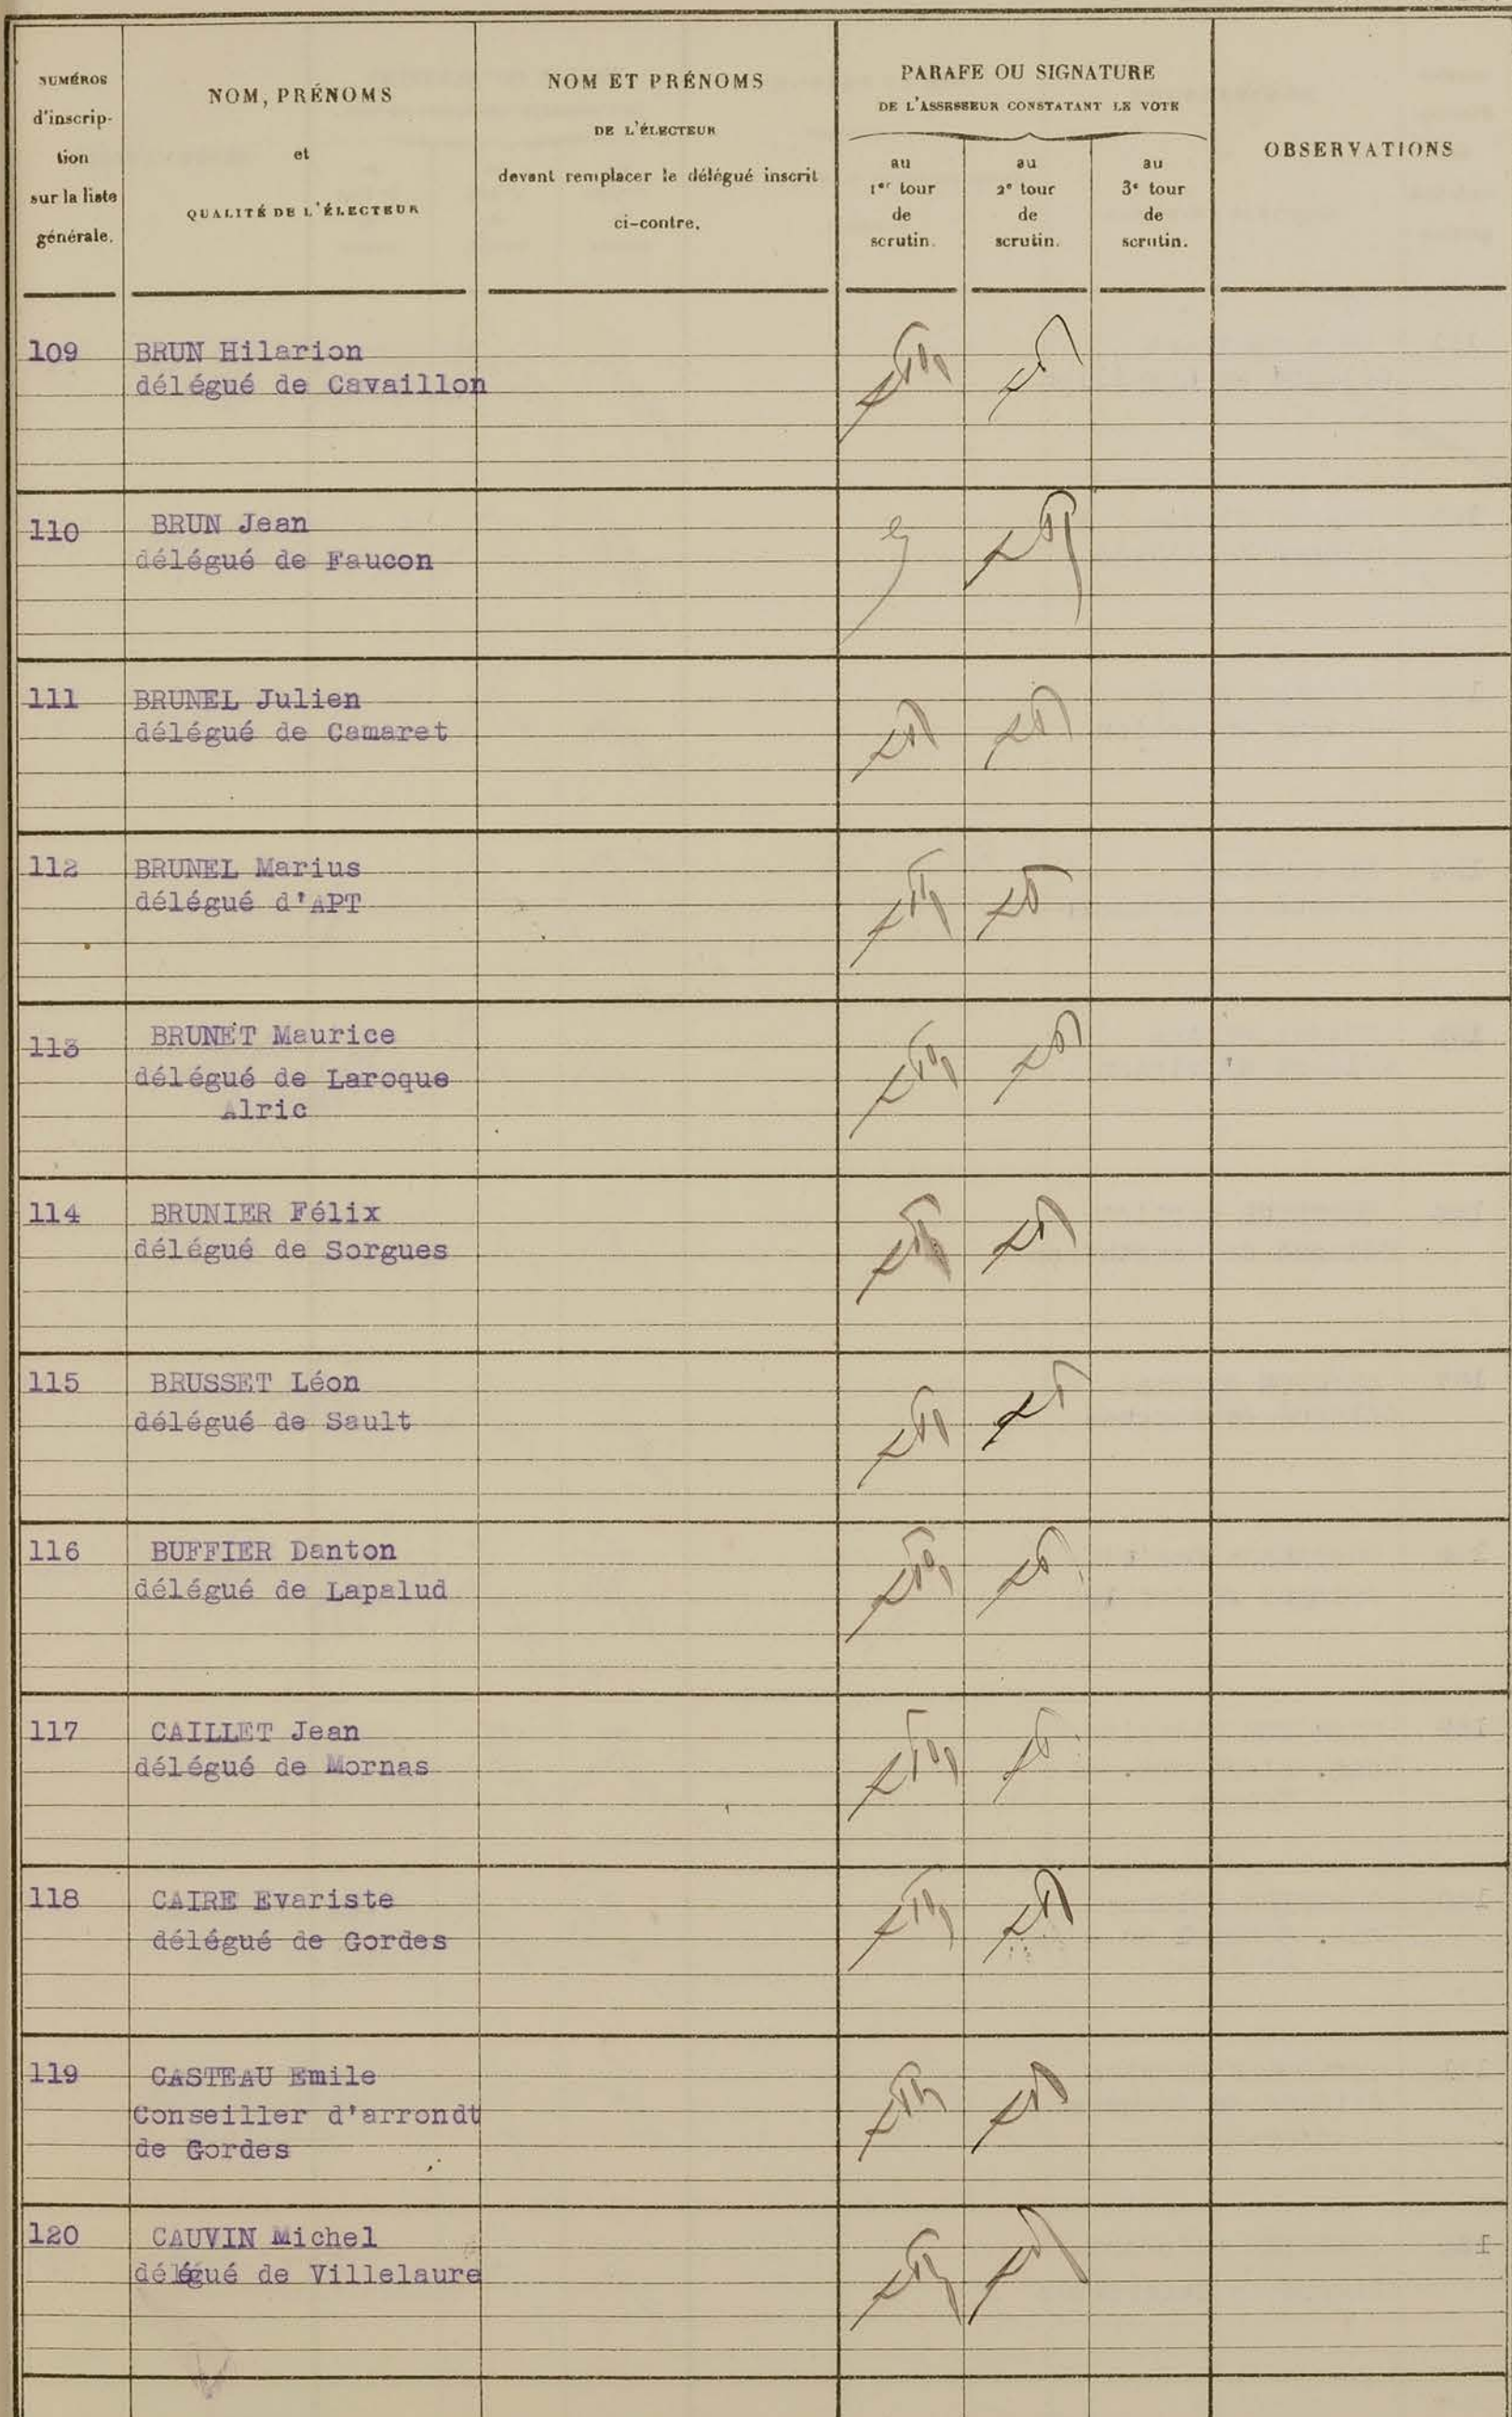 NUMÉROS
d'inscrip-
tion
sur la liste
générale.
NOM, PRÉNOMS
et
QUALITÉ DE L'ÉLECTEUR
NOM ET PRÉNOMS
DE L'ÉLECTEUR
devant remplacer le délégué inscrit
ci-contre.
PARAFE OU SIGNATURE
DE L'ASSESSEUR CONSTATANT LE VOTE
au
1er tour
de
scrutin.
au
2e tour
de
scrutin.
au
3e tour
de
scrutin.
OBSERVATIONS
109 BRUN Hilarion
délégué de Cavaillon
110 BRUN Jean
délégué de Faucon
111 BRUNEL Julien
délégué de Camaret
112 BRUNEL Marius
délégué d'APT
113 BRUNET Maurice
délégué de Laroque
Alric
114 BRUNIER Félix
délégué de Sorgues
115 BRUSSET Léon
délégué de Sault
116 BUFFIER Danton
délégué de Lapalud
117 CAILLET Jean
délégué de Mornas
118 CAIRE Evariste
délégué de Gordes
119 CASTEAU Emile
Conseiller d'arrondt
de Gordes
120 CAUVIN Michel
délégué de Villelaure